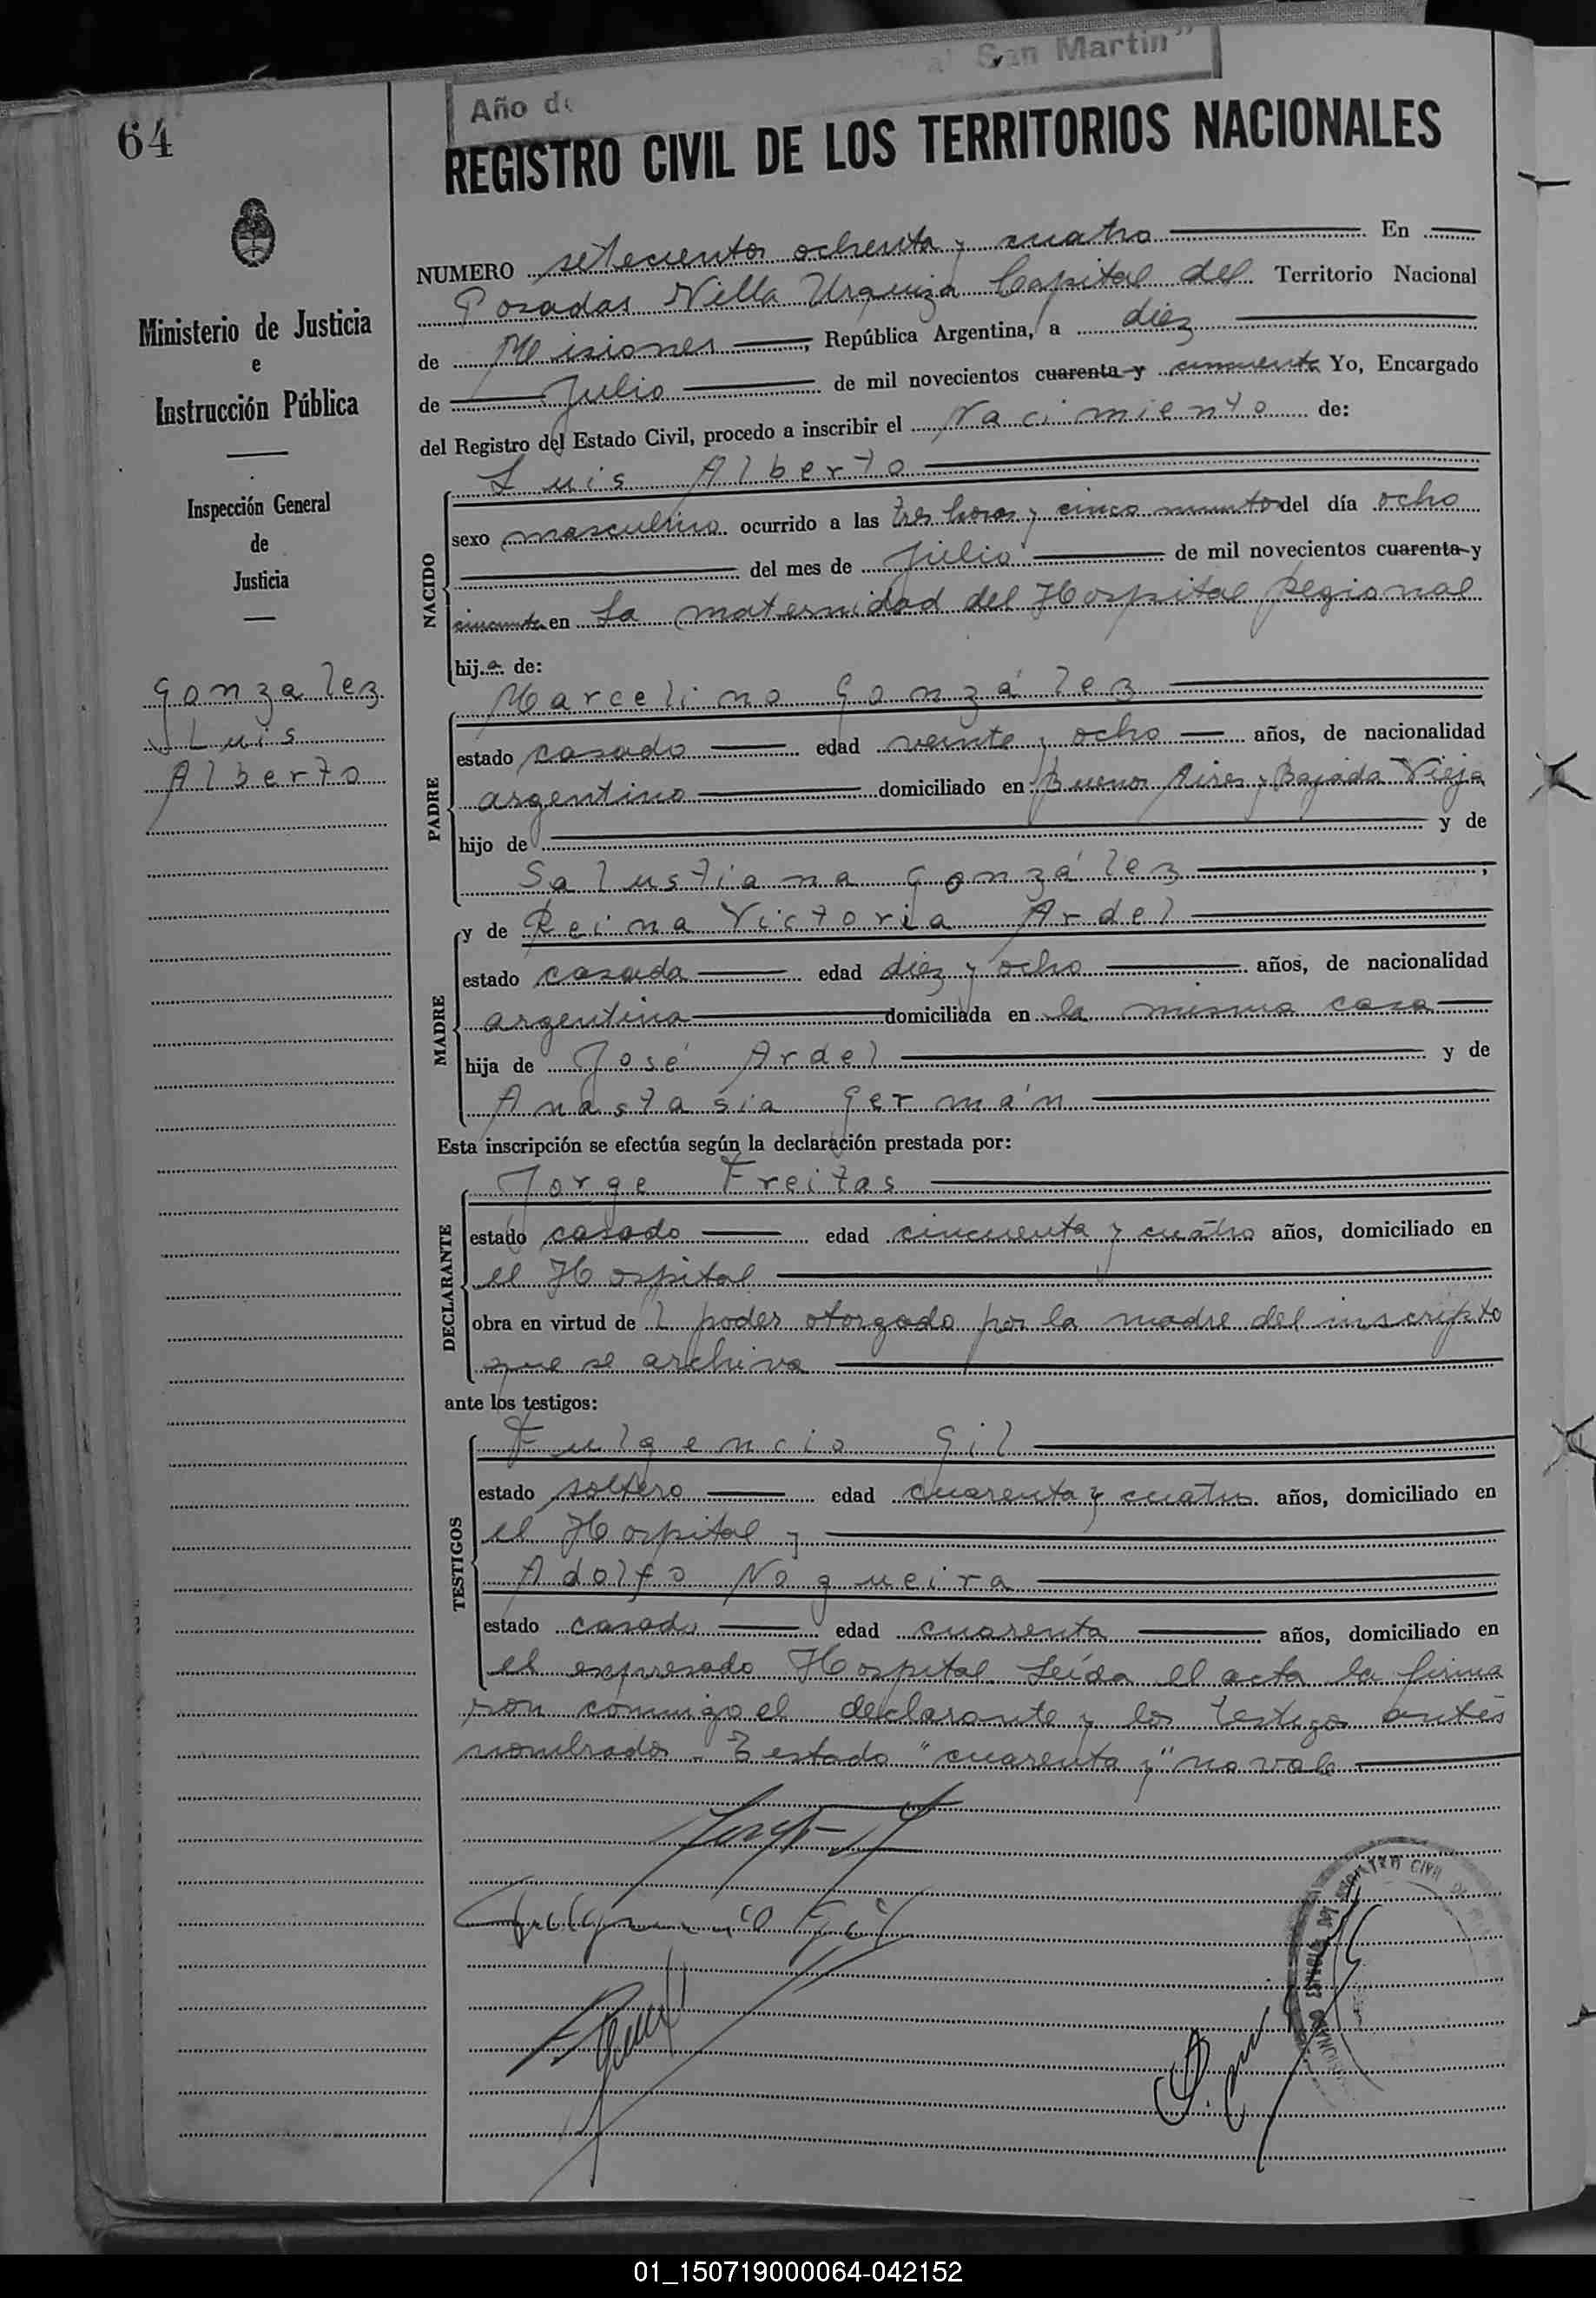 Año de
San Martín"
64
REGISTRO CIVIL DE LOS TERRITORIOS NACIONALES
NUMERO setecientos ochenta y cuatro En
Posadas Villa Urquiza Capital del Territorio Nacional
de Misiones, República Argentina, a diez
de Julio de mil novecientos cuarenta y cincuenta Yo, Encargado
del Registro del Estado Civil, procedo a inscribir el Nacimiento de:
Ministerio de Justicia
e
Instrucción Pública
Inspección General
de
Justicia
Gonzalez
Luis
Alberto
NACIDO
Luis Alberto
sexo masculino ocurrido a las tres horas y cinco minutos del día ocho
del mes de Julio de mil novecientos cuarenta y
cincuenta en La maternidad del Hospital Regional
hijo de:
PADRE
Marcelino González
estado casado edad veinte y ocho años, de nacionalidad
argentino domiciliado en Buenos Aires y Bajada Vieja
hijo de y de
Salustiana González;
MADRE
y de Reina Victoria Ardel
estado casada edad diez y ocho años, de nacionalidad
argentina domiciliada en la misma casa
hija de José Ardel y de
Anastasia Germán
Esta inscripción se efectúa según la declaración prestada por:
DECLARANTE
Jorge Freitas
estado casado edad cincuenta y cuatro años, domiciliado en
el Hospital
obra en virtud de l poder otorgado por la madre del inscripto
que se archiva
ante los testigos:
TESTIGOS
Fulgencio Gil
estado soltero edad cuarenta y cuatro años, domiciliado en
el Hospital y
Adolfo Nogueira
estado casado edad cuarenta años, domiciliado en
el expresado Hospital. Leída el acta la firma
ron conmigo el declarante y los testigos antes
nombrados. Testado "cuarenta y" no vale
Fulgencio Gil
REGISTRO CIVIL
01_150719000064-042152